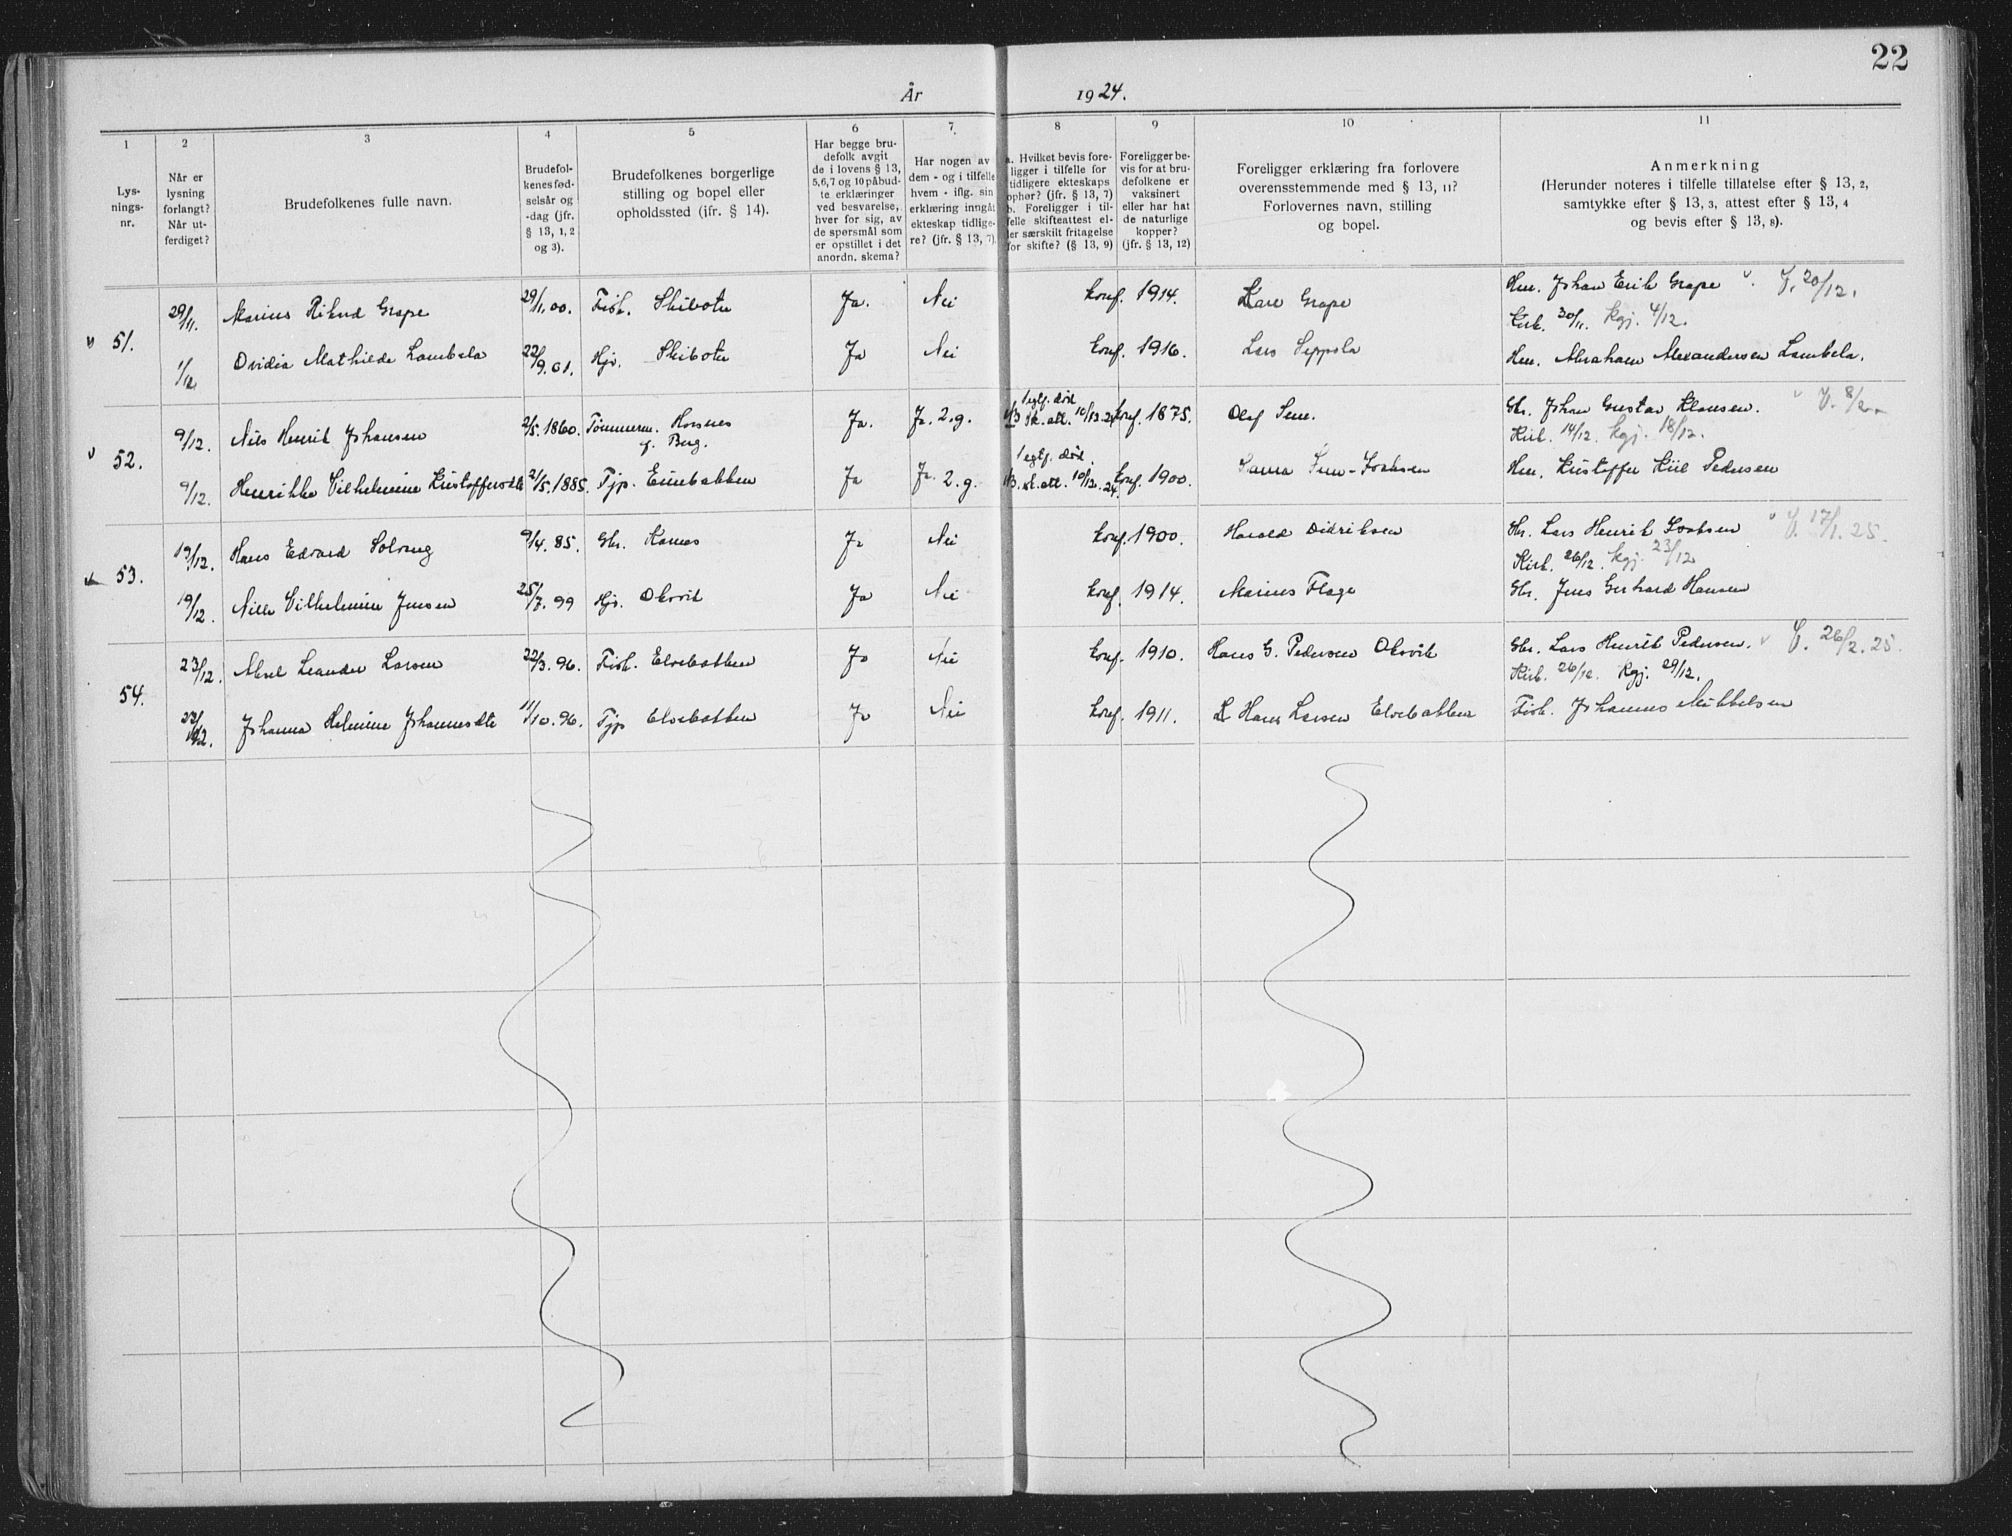 22
År 1924.
1 2 3 4 5 6 7 8 9 10 11
Lysningsnr.
Når er lysning forlangt? Når utferdiget?
Brudefolkenes fulle navn.
Brudefolkenes fødselsår og -dag (jfr. § 13, 1, 2 og 3).
Brudefolkenes borgerlige stilling og bopel eller opholdssted (ifr. § 14).
Har begge brudefolk avgit de i lovens § 13, 5, 6, 7 og 10 påbudte erklæringer ved besvarelse, hver for sig, av de spørsmål som er opstillet i det anordn. skema?
Har nogen av dem - og i tilfelle hvem - iflg. sin erklæring inngåt ekteskap tidligere? (jfr. § 13, 7)
a. Hvilket bevis foreligger i tilfelle for tidligere ekteskaps ophør? (jfr. § 13, 7) b. Foreligger i tilfelle skifteattest eller særskilt fritagelse for skifte? (§ 13, 9)
Foreligger bevis for at brudefolkene er vaksinert eller har hat de naturlige kopper? (jfr. § 13, 12)
Foreligger erklæring fra forlovere overensstemmende med § 13, 11? Forlovernes navn, stilling og bopel.
Anmerkning (Herunder noteres i tilfelle tillatelse efter § 13, 2, samtykke efter § 13, 3, attest efter § 13, 4 og bevis efter § 13, 8).
51. 29/11. Marius Rikard Grape 29/1.00. Fisk. Skibotn Ja. Nei konf. 1914. Grape Hm. Johan Erik Grape V. 20/12.
Kirk. 30/11. kgj. 4/12.
1/12 Ovidia Mathilde Lambela 22/9.01. Hjv. Skibotn Ja Nei konf. 1916. Lars Seppola Hm. Abraham Alexandersen Lambela.
52. 9/12. Nils Henrik Johansen 2/5.1860. Tømmerm. Horsnes f. Berg. Ja. Ja. 2.g. sk. att. 10/12.24 konf. 1875. Olaf Gbr. Johan Gustav Klausen. V. 8/2
Kirk. 14/12. kgj. 18/12.
9/12. Henrikke Vilhelmine Kristoffersdtr 21/5.1885. Tjp. Ja Ja. 2.g. sk. att. 10/12.24. konf. 1900. Hm. Kristoffer Kiil Pedersen
53. 19/12. Hans Edvard Solvang 9/4.85. Gbr. Karnes Ja Nei konf. 1900. Harald Didriksen Gbr. Lars Henrik Isaksen V. 17/1.25.
Kirk. 26/12. kgj. 23/12
19/12. Nille Vilhelmine Jensen 25/7.99 Hjv. Oksvik Ja Nei konf. 1914. Marius Flage Gbr. Jens Gerhard Hansen
54. 23/12. Aksel Leander Larsen 22/3.96. Fisk. Elvebakken Ja Nei konf. 1910. Hans G. Pedersen Oksvik Gbr. Lars Henrik Pedersen. V. 26/2.25.
Kirk. 26/12. Kgj. 29/12.
23/12. Johanna Helmine Johannesdtr 11/10.96. Tjp Elvebakken Ja Nei konf. 1911. Hans Larsen Elvebakken Fisk. Johannes Mikkelsen